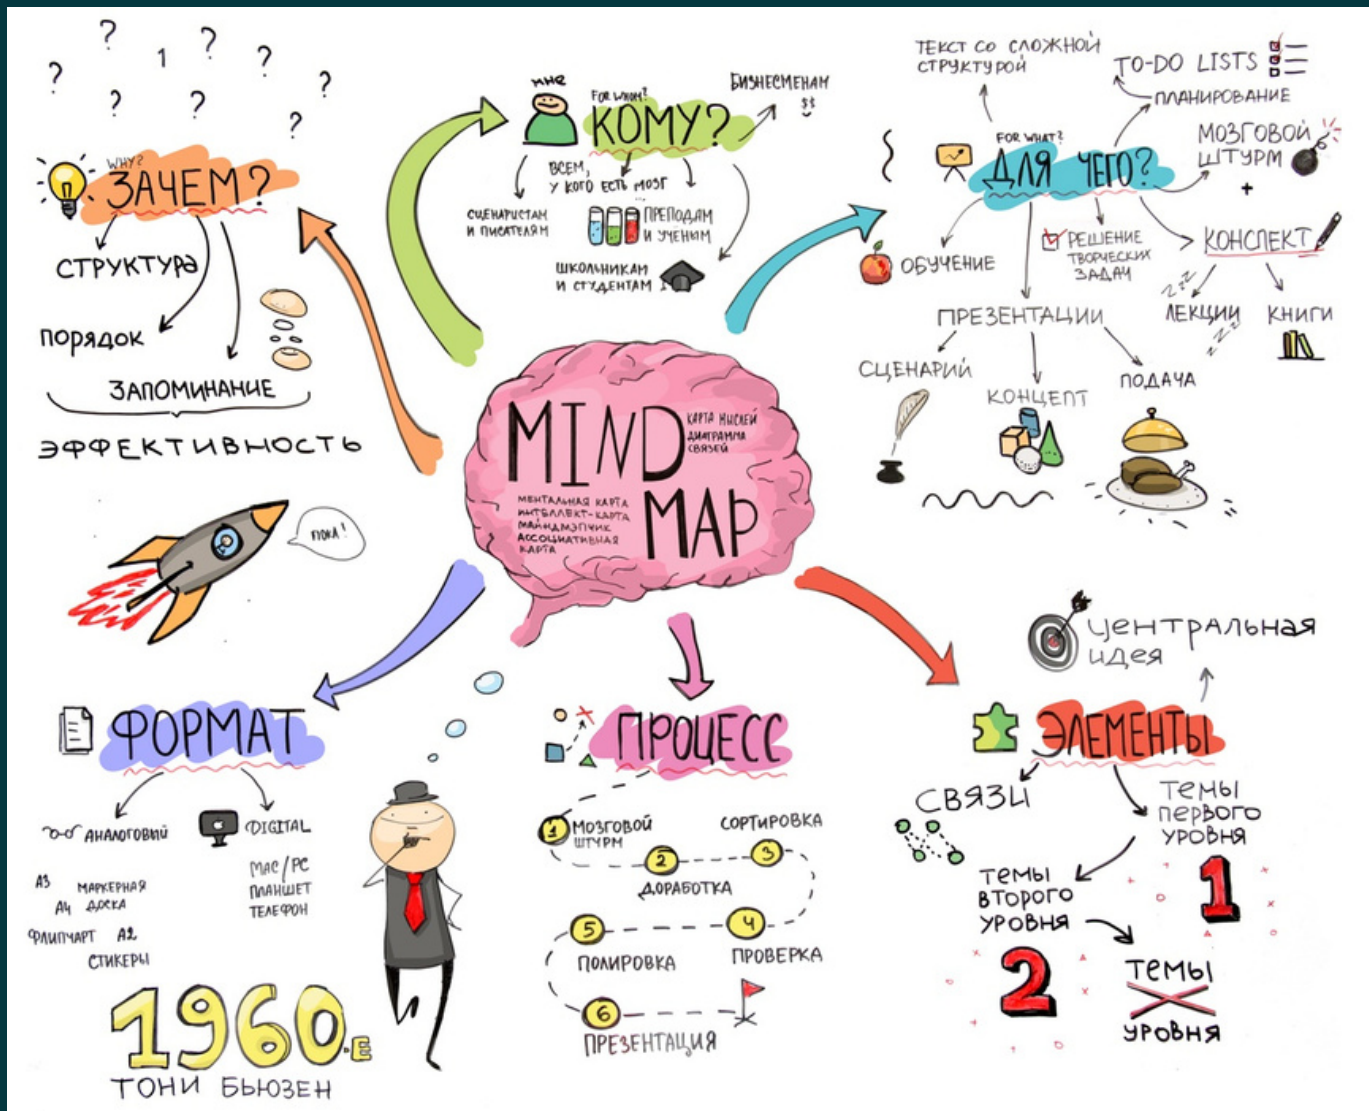 ? ? 1 ? ? ? ? ? ?
WHY?
ЗАЧЕМ?
СТРУКТУРА
ПОРЯДОК
ЗАПОМИНАНИЕ
ЭФФЕКТИВНОСТЬ
ПОКА!
МНЕ
FOR WHOM?
КОМУ?
БИЗНЕСМЕНАМ
$$
ВСЕМ,
У КОГО ЕСТЬ МОЗГ
...
СЦЕНАРИСТАМ
И ПИСАТЕЛЯМ
ПРЕПОДАМ
И УЧЕНЫМ
ШКОЛЬНИКАМ
И СТУДЕНТАМ
ТЕКСТ СО СЛОЖНОЙ
СТРУКТУРОЙ
TO-DO LISTS
ПЛАНИРОВАНИЕ
FOR WHAT?
ДЛЯ ЧЕГО?
МОЗГОВОЙ
ШТУРМ
+
КОНСПЕКТ
ЛЕКЦИИ
zzz
zzz
КНИГИ
РЕШЕНИЕ
ТВОРЧЕСКИХ
ЗАДАЧ
ОБУЧЕНИЕ
ПРЕЗЕНТАЦИИ
СЦЕНАРИЙ
КОНЦЕПТ
ПОДАЧА
MIND
MAP
КАРТА МЫСЛЕЙ
ДИАГРАММА
СВЯЗЕЙ
МЕНТАЛЬНАЯ КАРТА
ИНТЕЛЛЕКТ-КАРТА
МАЙНДМЭПЧИК
АССОЦИАТИВНАЯ
КАРТА
ФОРМАТ
АНАЛОГОВЫЙ
DIGITAL
А3
МАРКЕРНАЯ
ДОСКА
А4
ФЛИПЧАРТ А2
СТИКЕРЫ
MAC/PC
ПЛАНШЕТ
ТЕЛЕФОН
1960-Е
ТОНИ БЬЮЗЕН
ПРОЦЕСС
1
МОЗГОВОЙ
ШТУРМ
2
ДОРАБОТКА
3
СОРТИРОВКА
4
ПРОВЕРКА
5
ПОЛИРОВКА
6
ПРЕЗЕНТАЦИЯ
ЦЕНТРАЛЬНАЯ
ИДЕЯ
ЭЛЕМЕНТЫ
СВЯЗИ
ТЕМЫ
ПЕРВОГО
УРОВНЯ
1
ТЕМЫ
ВТОРОГО
УРОВНЯ
2
ТЕМЫ
X
УРОВНЯ